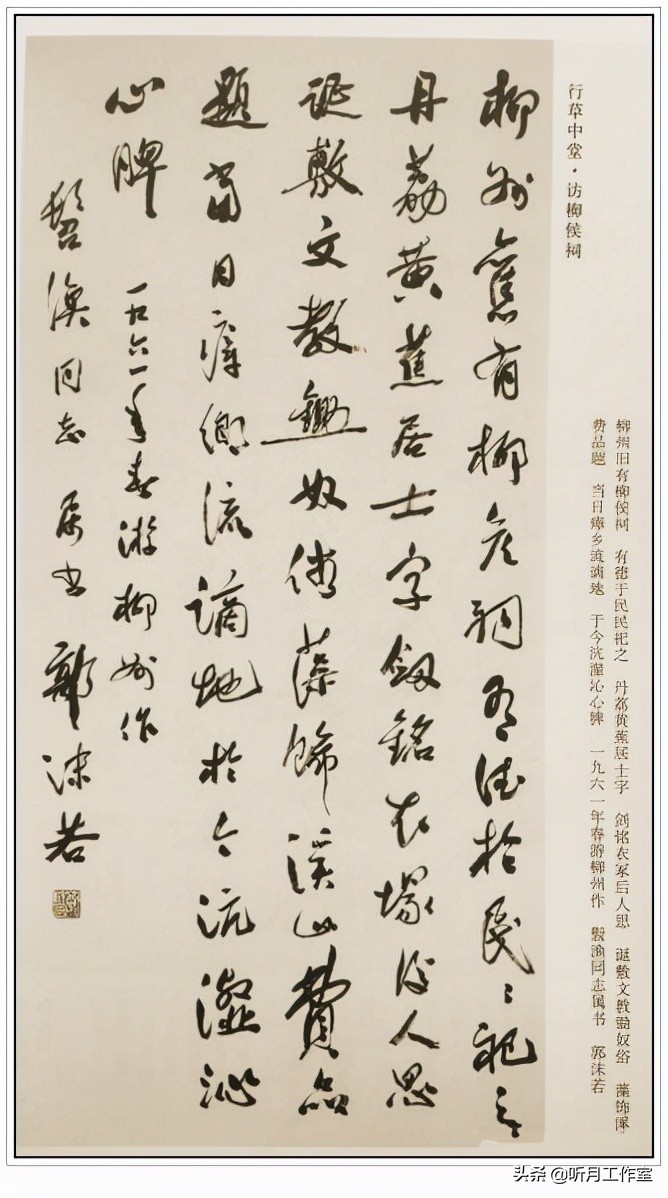 柳州旧有柳侯祠 有德于民民祀之 丹荔黄蕉居士字 剑铭衣冢后人思 诞敷文教锄奴俗 藻饰溪山
费品题 当日瘴乡流谪地 于今沆瀣沁心脾 一九六一年春游柳州作 同志属书 郭沫若
行草中堂·访柳侯祠
柳州舊有柳侯祠有德於民〻祀之
丹荔黄蕉居士字劔銘衣塚後人思
誕敷文教鋤奴俗藻飾溪山費品
題當日瘴鄉流謫地於今沆瀣沁
心脾 一九六一年春游柳州作
同志属书 郭沫若
头条 @听月工作室